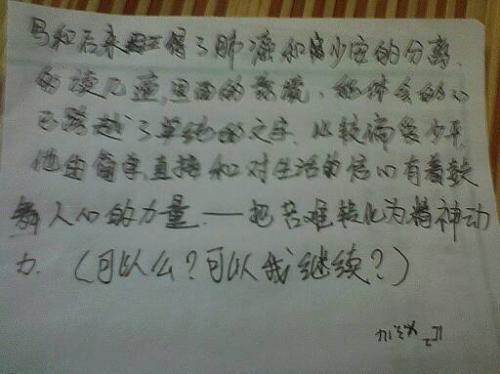 和后来 得了肺癌和 少安的分离.
的读几遍,里面的 、能体会的
已跨越了单纯的文字. 比较偏爱少平,
他的简单直接和对生活的信心有着鼓
舞人心的力量.——把苦难转化为精神动
力.(可以么?可以我继续?)